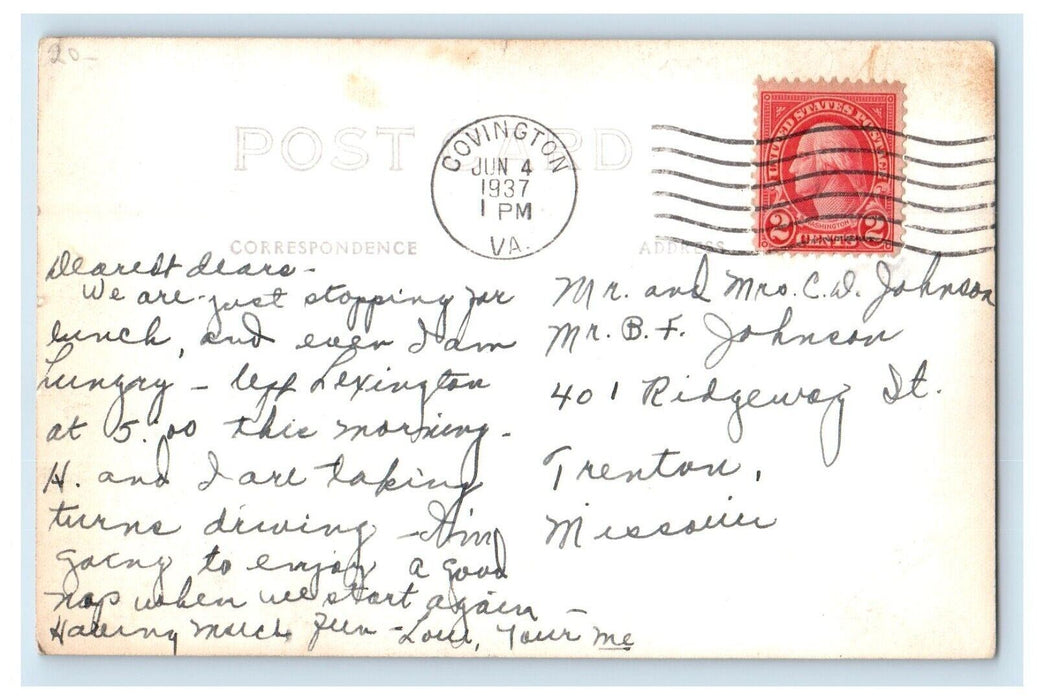 20-
POST CARD
COVINGTON
JUN 4
1937
1 PM
VA.
UNITED STATES POSTAGE
WASHINGTON
2 2
CORRESPONDENCE
ADDRESS
Dearest dears -
We are just stopping for
lunch, and even I am
hungry - left Lexington
at 5:00 this morning -
H. and I are taking
turns driving - Am
going to enjoy a good
nap when we start again -
Having much fun - Love, Your me
Mr. and Mrs. C.D. Johnson
Mr. B. F. Johnson
401 Ridgeway St.
Trenton,
Missouri